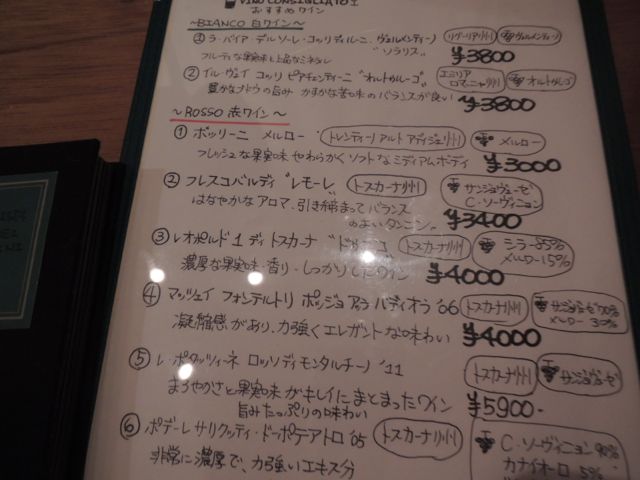 VINO CONSIGLIATO I
おすすめワイン
~BIANCO 白ワイン~
③ラ・バイア デル ソーレ・コッリ ディ ルーニ・ヴェルメンティーノ "ソラリス" リグーリア州 ヴェルメンティーノ
フルーティな果実味と上品なミネラル ¥3800
②イル・ヴェイ コッリ ピアチェンティーニ "オルトゥルーゴ" エミリアロマーニャ州 オルトゥルーゴ
豊かなブドウの旨み かすかな苦味のバランスが良い ¥3800
~ROSSO 赤ワイン~
①ポッリーニ メルロー トレンティーノアルトアディジェ州 メルロー
フレッシュな果実味 やわらかく ソフトなミディアムボディ ¥3000
②フレスコバルディ "レモーレ" トスカーナ州 サンジョヴェーゼ C・ソーヴィニョン
はなやかなアロマ、引き締まってバランス
のよいタンニン。 ¥3400
③レオポルド1 ディ トスカーナ トスカーナ州 シラー85% メルロー15%
濃厚な果実味・香り・しっかりしたワイン ¥4000
④マッツェイ フォンテルトリ ポッジョ アッラ バディオラ '06 トスカーナ州 サンジョヴェーゼ70% メルロー30%
凝縮感があり、力強くエレガントな味わい ¥4000
⑤レ・ポタッツィーネ ロッソディモンタルチーノ '11 トスカーナ州 サンジョヴェーゼ
まろやかさと果実味がキレイにまとまったワイン
旨みたっぷりの味わい ¥5900-
⑥ポデーレ サリクッティ・ドーポテアトロ '05 トスカーナ州 C・ソーヴィニョン 90%
カナイオーロ 5%
非常に濃厚で、力強いエキス分